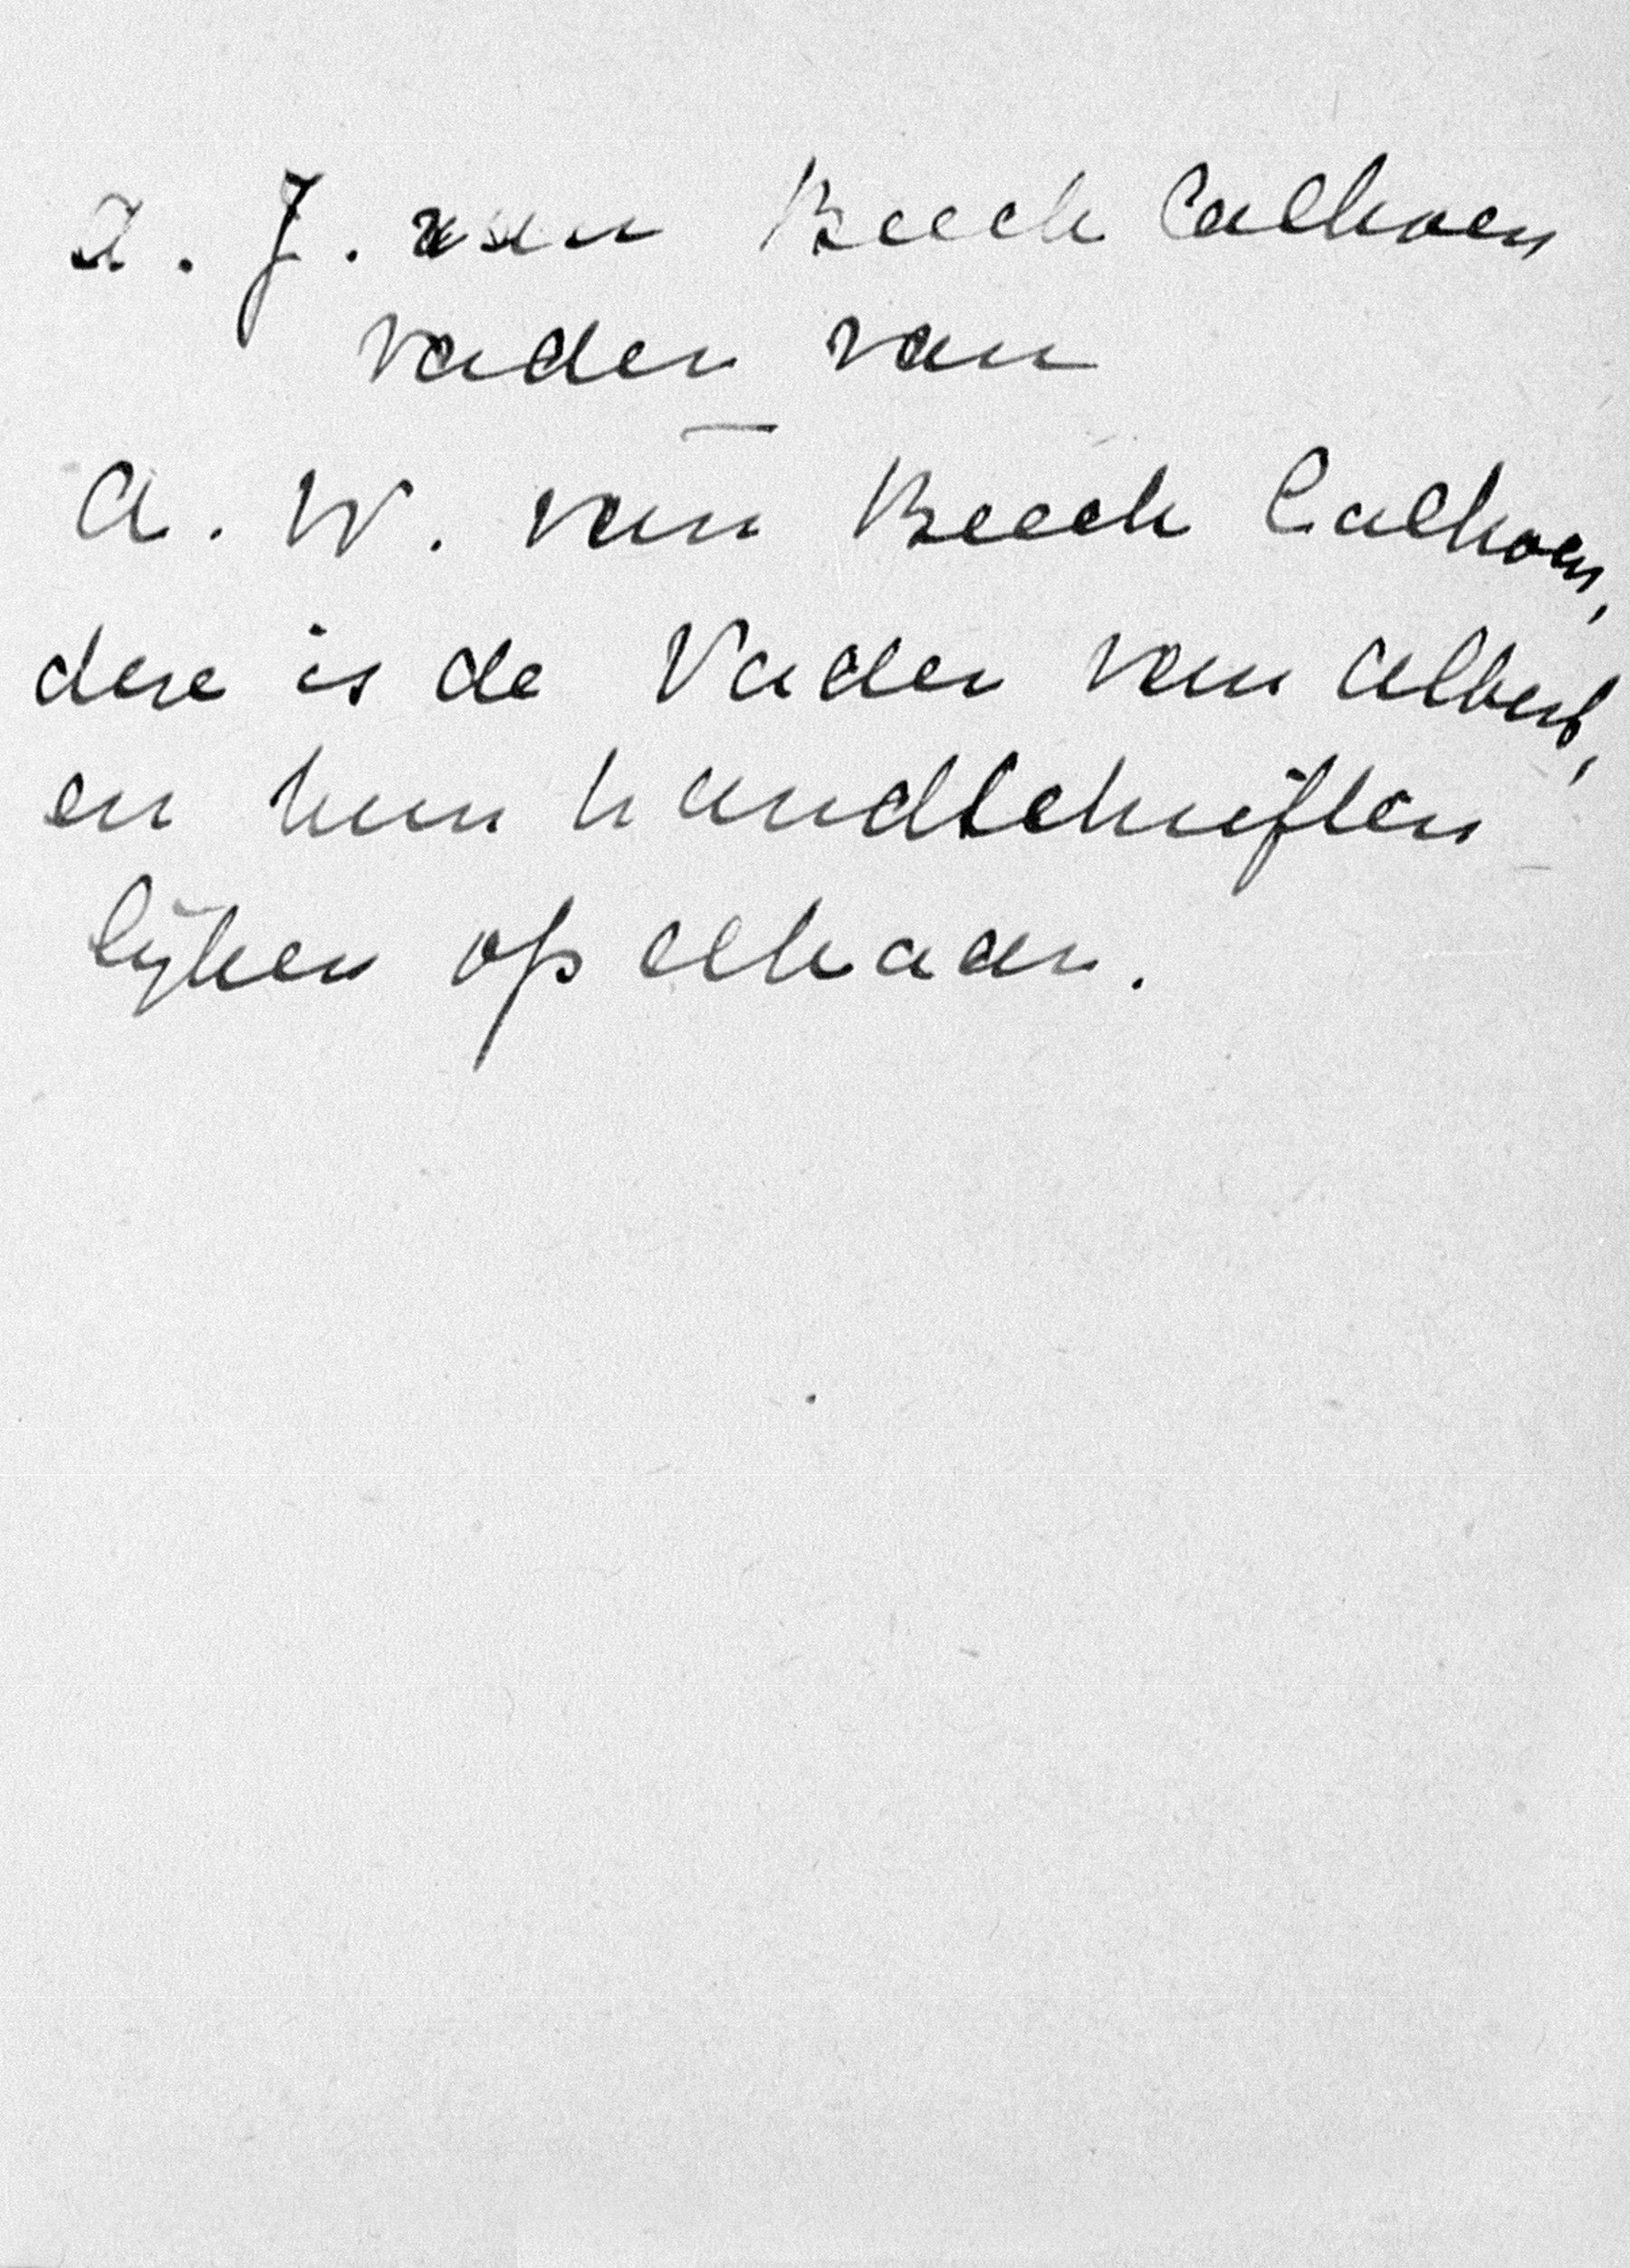 A. J. van Beeck Calkoen
vader van
A. W. van Beeck Calkoen,
deze is de Vader van Albert,
en hun handschriften
lijken op elkaar.